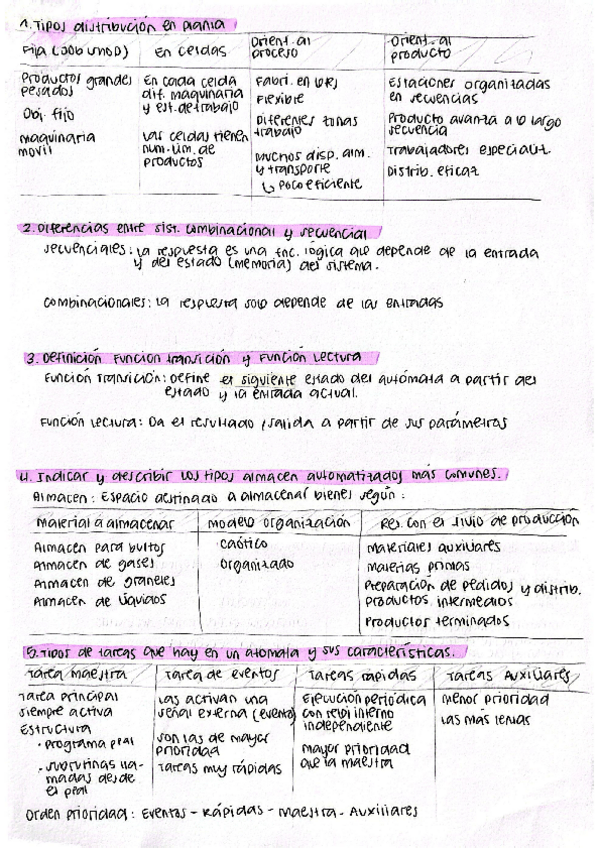 1. Tipos distribución en planta
Fija (Job shop) | En celdas | Orient. al proceso | Orient. al producto
Productos grandes pesados
Obj. fijo
maquinaria movil
En cada celda dif. maquinaria y est. de trabajo
Las celdas tienen num. lim. de productos
Fabri. en lotes
Flexible
Diferentes zonas trabajo
Muchos disp. alm. y transporte
↳ Poco eficiente
Estaciones organizadas en secuencias
Producto avanza a lo largo secuencia
Trabajadores especializ.
Distrib. eficaz
2. Diferencias entre sist. combinacional y secuencial
secuenciales: La respuesta es una fnc. lógica que depende de la entrada
y del estado (memoria) del sistema.
combinacionales: La respuesta solo depende de las entradas
3. Definición Función transición y Función Lectura
Función Transición: Define el siguiente estado del autómata a partir del
estado y la entrada actual.
Función Lectura: Da el resultado / salida a partir de sus parámetros
4. Indicar y describir los tipos almacen automatizados más comunes.
Almacen: Espacio destinado a almacenar bienes según:
Material a almacenar | Modelo organización | Rel. con el flujo de producción
Almacen para bultos
Almacen de gases
Almacen de graneles
Almacen de líquidos
caótico
organizado
Materiales auxiliares
materias primas
Preparación de pedidos y distrib.
Productos intermedios
Productos terminados
5. Tipos de tareas que hay en un atomata y sus características.
Tarea maestra | Tarea de eventos | Tareas rápidas | Tareas Auxiliares
Tarea principal
siempre activa
Estructura
· programa ppal
· subrutinas lla-
madas desde
el ppal
Las activan una
señal externa (evento)
son las de mayor
prioridad
Tareas muy rápidas
Ejecución periódica
con reloj interno
independiente
mayor prioridad
que la maestra
menor prioridad
las más lentas
Orden prioridad: Eventos - Rápidas - Maestra - Auxiliares